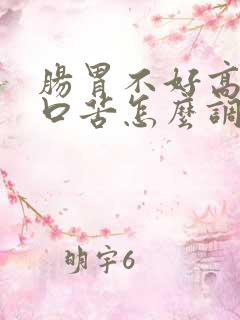 腸胃不好高
口苦怎麼調
明宇6